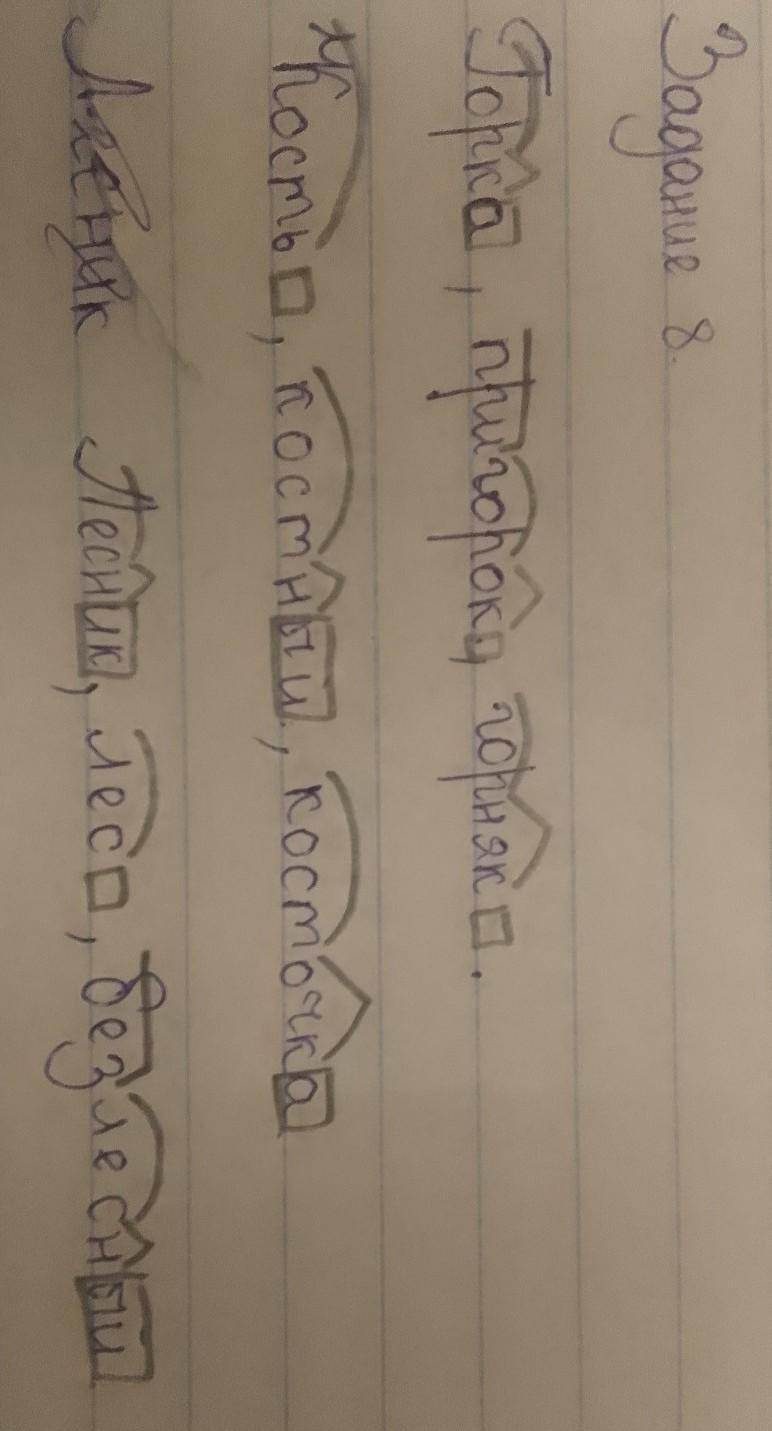 Задание 8.
Горка, пригорок, горняк.
Кость, костный, косточка
Лесник Лесник, лес, безлесный